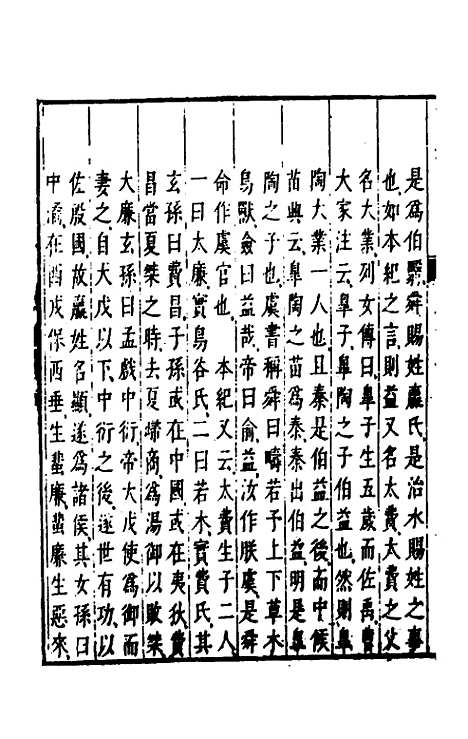 是爲伯翳舜賜姓嬴氏是治水賜姓之事
也如本紀之言則益又名太費太費之父
名大業列女傳曰臯子生五歲而佐禹曹
大家注云臯子臯陶之子伯益也然則臯
陶大業一人也且秦是伯益之後而中候
苗興云臯陶之苗爲秦秦出伯益明是臯
陶之子也虞書稱舜曰疇若予上下草木
鳥獸僉曰益哉帝曰俞益汝作朕虞是舜
命作虞官也　本紀又云太費生子二人
一曰大廉實鳥谷氏二曰若木實費氏其
玄孫曰費昌子孫或在中國或在夷狄費
昌當夏桀之時去夏歸商爲湯御以敗桀
大廉玄孫曰孟戲中衍帝大戊使爲御而
妻之自大戊以下中衍之後遂世有功以
佐殷國故嬴姓名顯遂爲諸侯其玄孫曰
中潏在西戎保西垂生蜚廉蜚廉生惡來